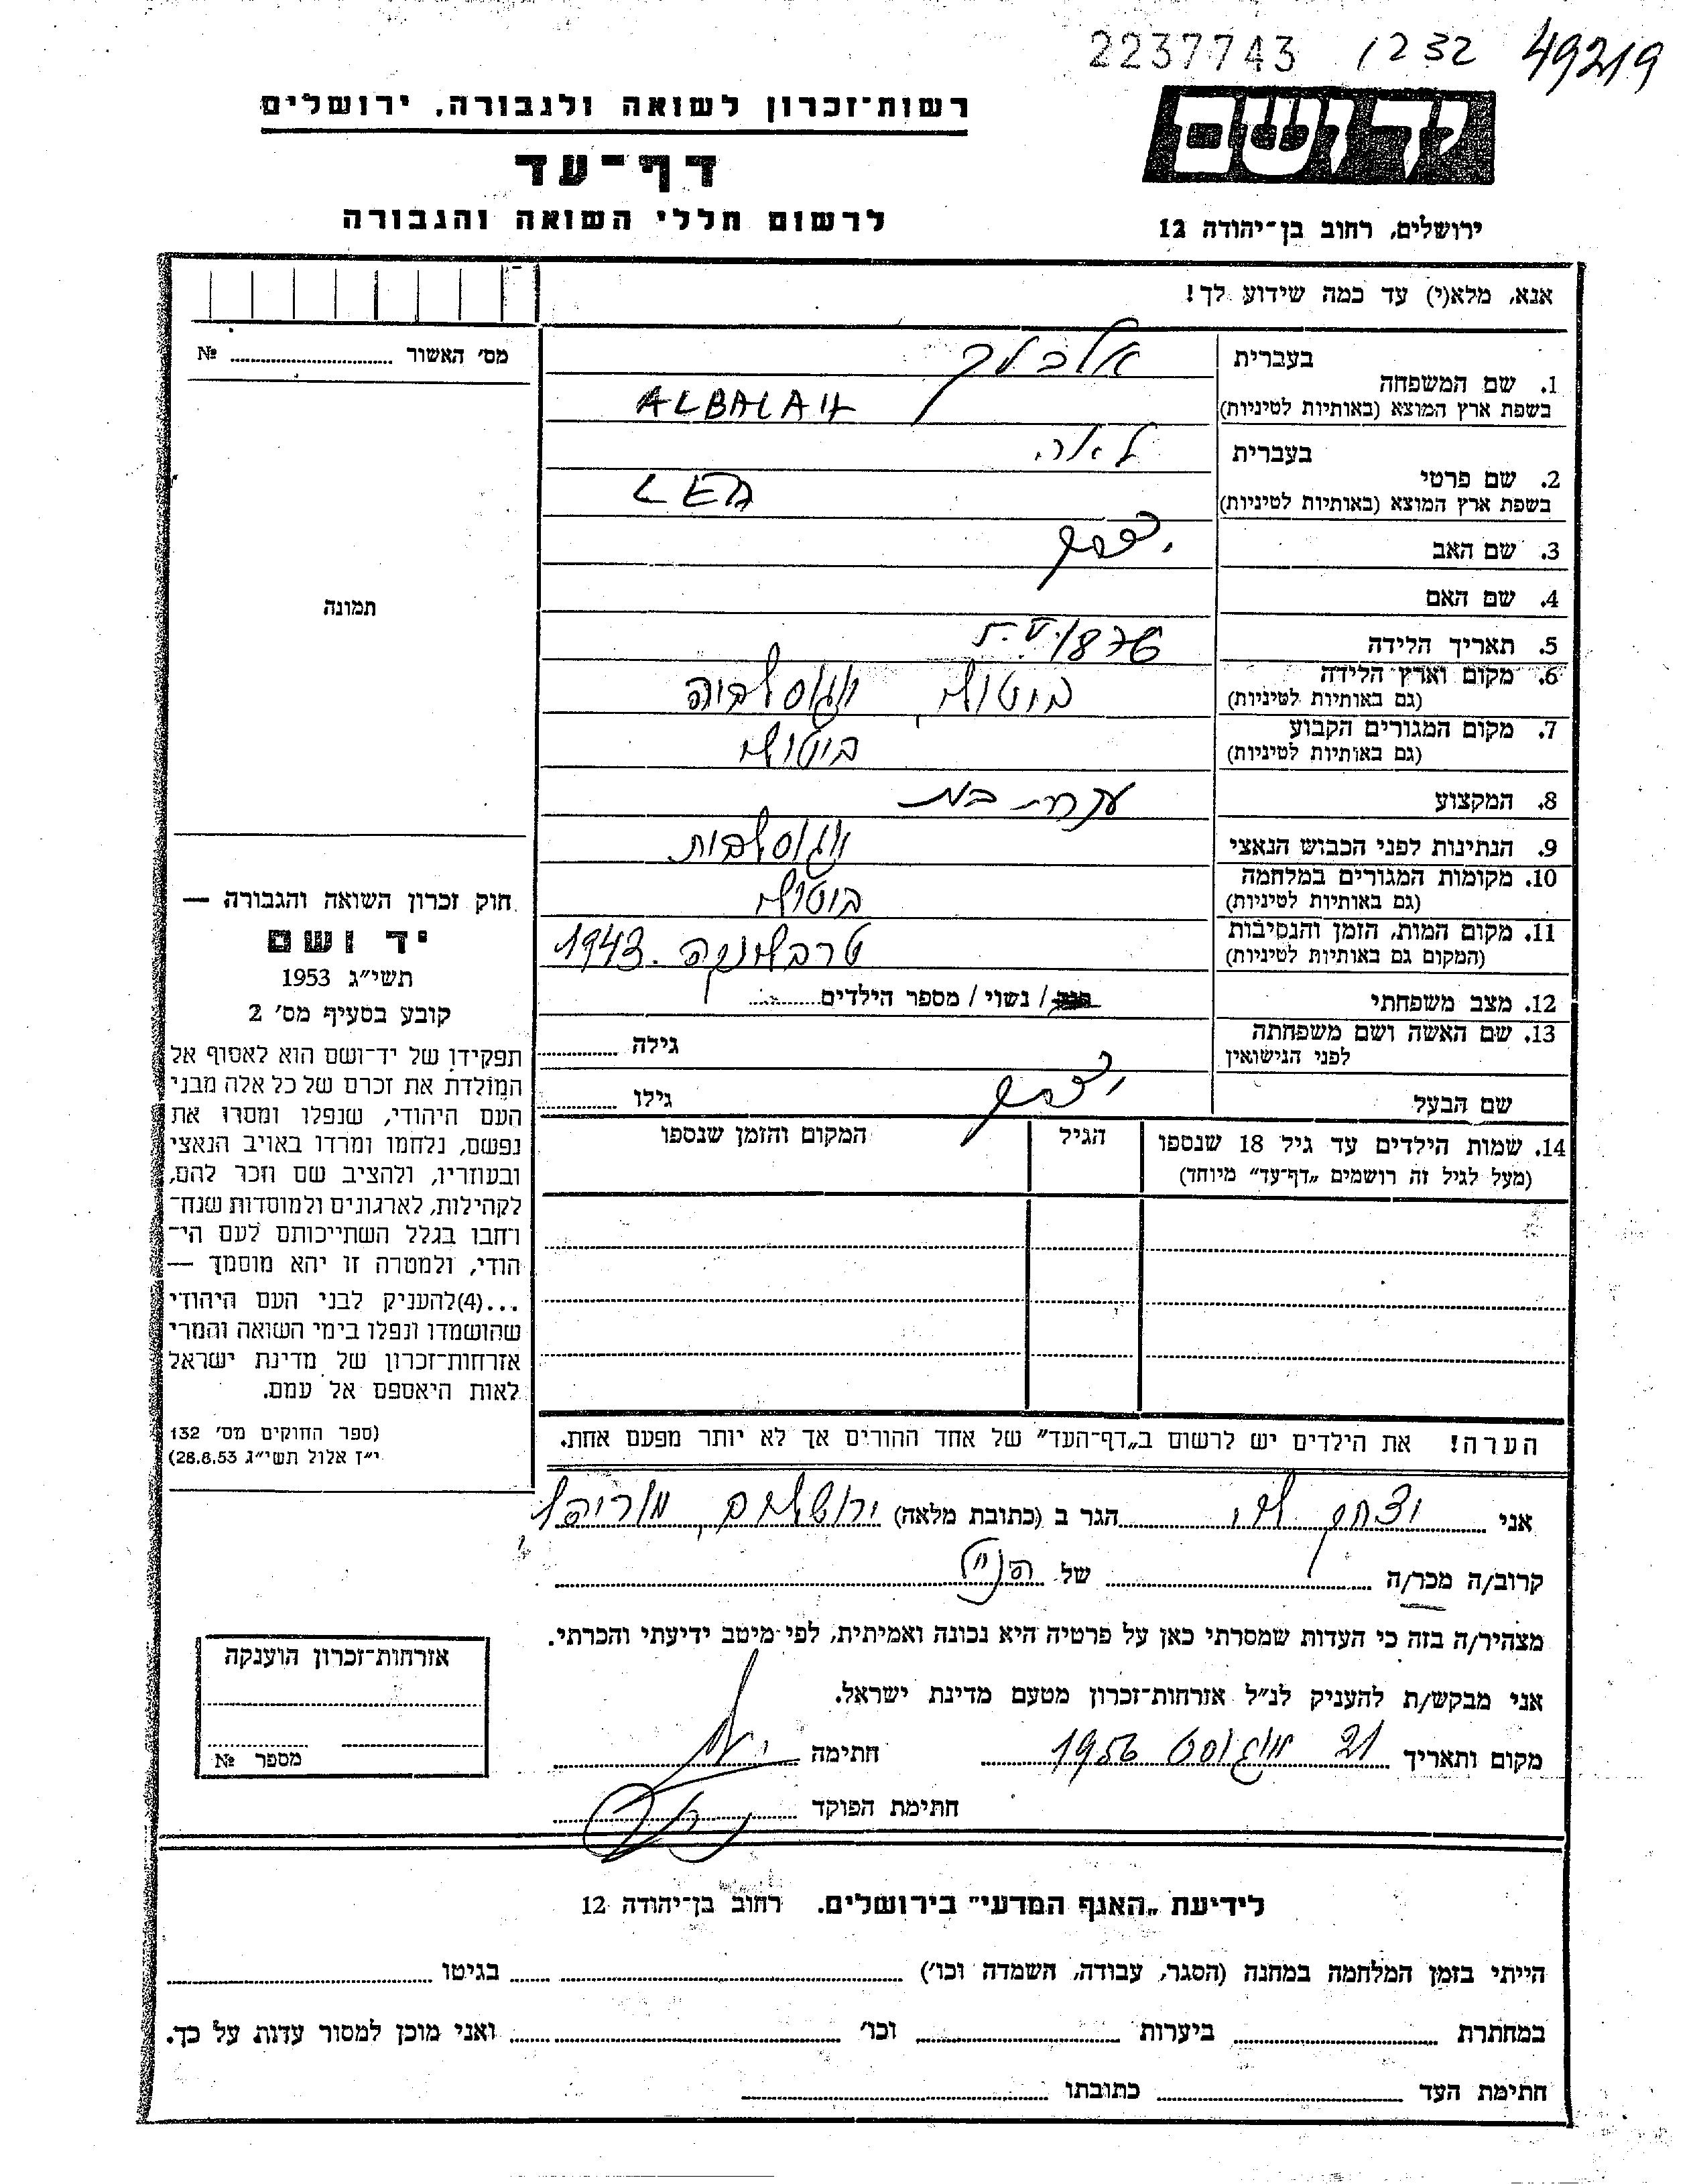 2237743 1232 49219
יד ושם
ירושלים, רחוב בן־יהודה 12
רשות־זכרון לשואה ולגבורה, ירושלים
דף־עד
לרשום חללי השואה והגבורה
אנא, מלא(י) עד כמה שידוע לך!
מס' האשור № ........
תמונה
1. שם המשפחה
בעברית אלבלך
בשפת ארץ המוצא (באותיות לטיניות) ALBALAH
2. שם פרטי
בעברית לאה
בשפת ארץ המוצא (באותיות לטיניות) LEA
3. שם האב יוסף
4. שם האם
5. תאריך הלידה
6. מקום וארץ הלידה ביטולי, יוגוסלביה
(גם באותיות לטיניות)
7. מקום המגורים הקבוע ביטולי
(גם באותיות לטיניות)
8. המקצוע עקרת בית
9. הנתינות לפני הכבוש הנאצי יוגוסלבית
10. מקומות המגורים במלחמה ביטולי
(גם באותיות לטיניות)
11. מקום המות, הזמן והנסיבות טרבלינקה. 1943
(המקום גם באותיות לטיניות)
12. מצב משפחתי / נשוי / מספר הילדים........
13. שם האשה ושם משפחתה גילה ........
לפני הנישואין
שם הבעל יוסף גילו ........
14. שמות הילדים עד גיל 18 שנספו הגיל המקום והזמן שנספו
(מעל לגיל זה רושמים „דף־עד” מיוחד)
הערה! את הילדים יש לרשום ב„דף־העד” של אחד ההורים אך לא יותר מפעם אחת.
חוק זכרון השואה והגבורה —
יד ושם
תשי״ג 1953
קובע בסעיף מס' 2
תפקידו של יד־ושם הוא לאסוף אל
המולדת את זכרם של כל אלה מבני
העם היהודי, שנפלו ומסרו את
נפשם, נלחמו ומרדו באויב הנאצי
ובעוזריו, ולהציב שם וזכר להם,
לקהילות, לארגונים ולמוסדות שנח־
רחבו בגלל השתייכותם לעם הי־
הודי, ולמטרה זו יהא מוסמך —
...(4)להעניק לבני העם היהודי
שהושמדו ונפלו בימי השואה והמרי
אזרחות־זכרון של מדינת ישראל
לאות היאספם אל עמם.
(ספר החוקים מס' 132
י״ז אלול תשי״ג 28.8.53)
אני יצחק לוי הגר ב (כתובת מלאה) ירושלים,
קרוב/ה מכר/ה ........ של הנ״ל
מצהיר/ה בזה כי העדות שמסרתי כאן על פרטיה היא נכונה ואמיתית, לפי מיטב ידיעתי והכרתי.
אני מבקש/ת להעניק לנ״ל אזרחות־זכרון מטעם מדינת ישראל.
מקום ותאריך 21 אוגוסט 1956 חתימה
חתימת הפוקד
אזרחות־זכרון הוענקה
מספר №
לידיעת „האגף המדעי” בירושלים. רחוב בן־יהודה 12
הייתי בזמן המלחמה במחנה (הסגר, עבודה, השמדה וכו') ........ בגיטו ........
במחתרת ........ ביערות ........ וכו' ........ ואני מוכן למסור עדות על כך.
חתימת העד ........ כתובתו ........